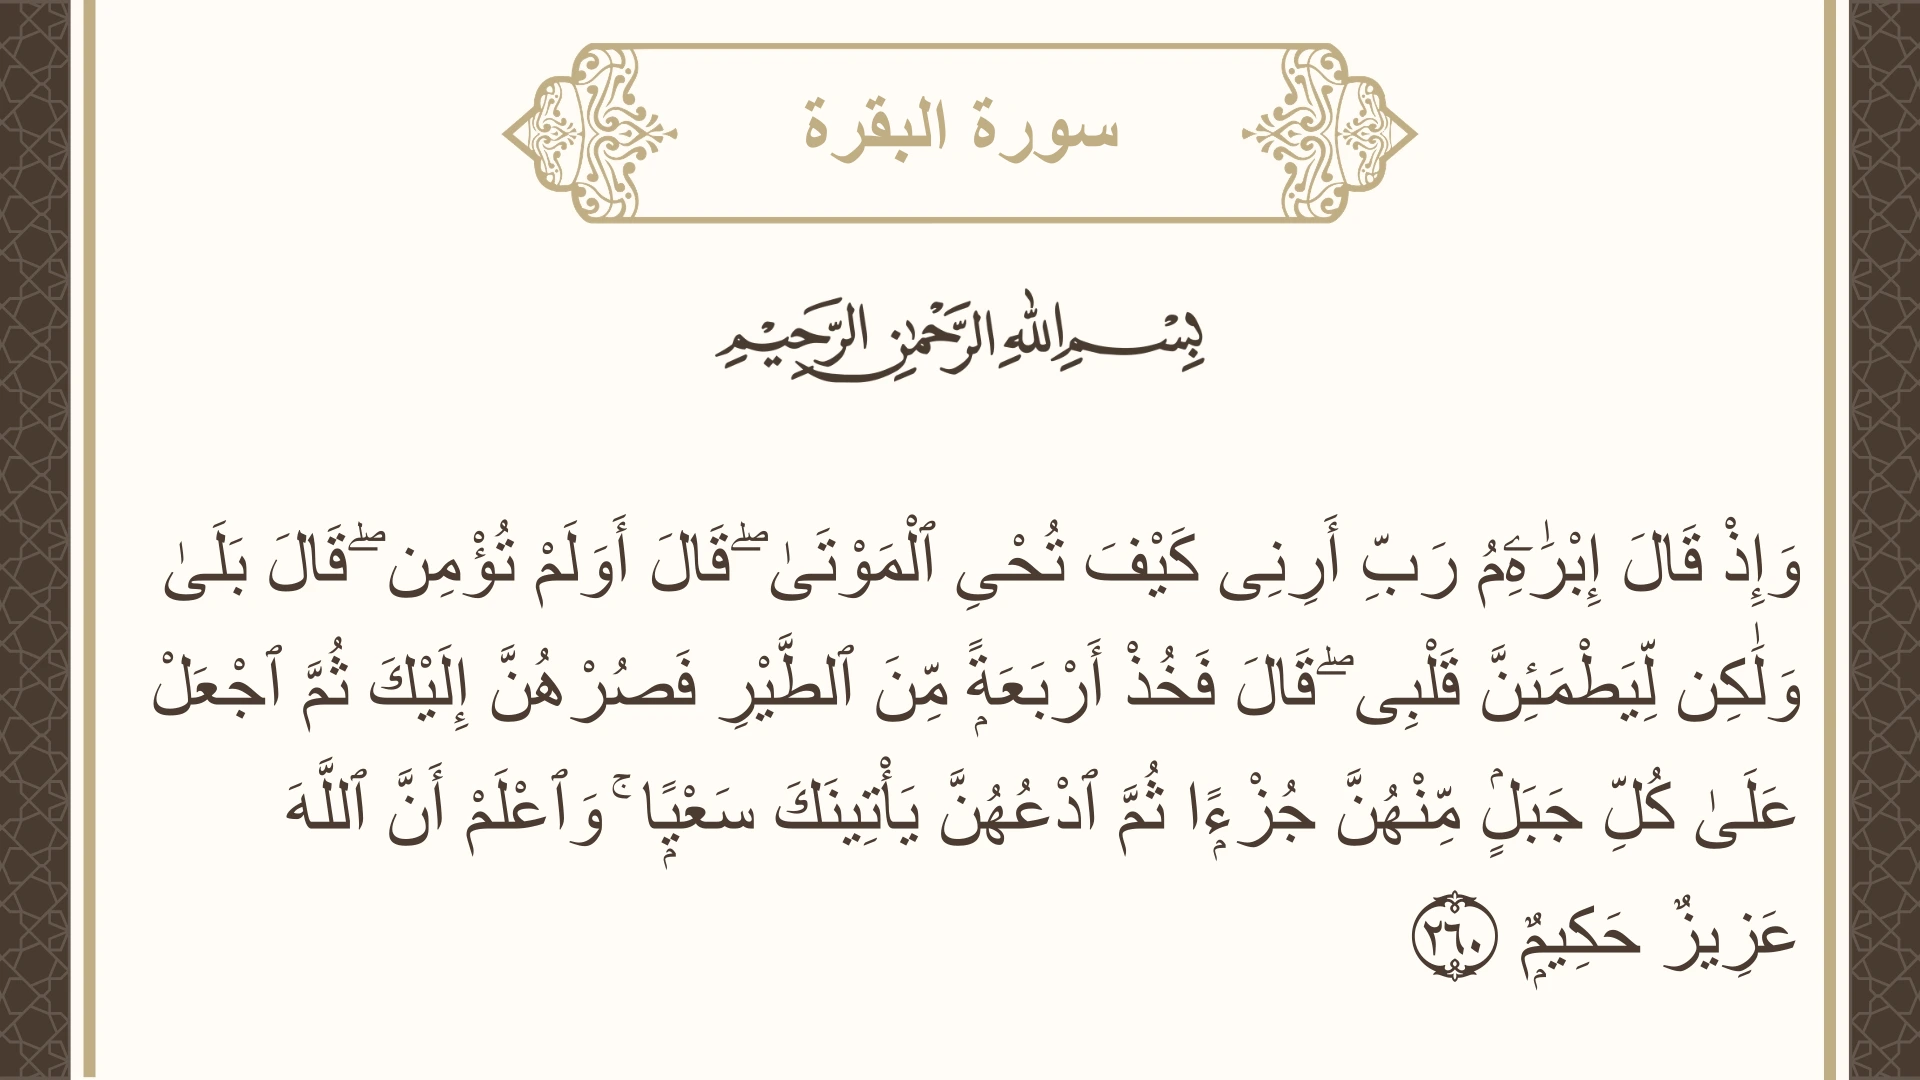 سورة البقرة
بِسْمِ اللهِ الرَّحْمٰنِ الرَّحِيْمِ
وَإِذْ قَالَ إِبْرَٰهِۦمُ رَبِّ أَرِنِى كَيْفَ تُحْىِ ٱلْمَوْتَىٰ ۖ قَالَ أَوَلَمْ تُؤْمِن ۖ قَالَ بَلَىٰ
وَلَٰكِن لِّيَطْمَئِنَّ قَلْبِى ۖ قَالَ فَخُذْ أَرْبَعَةًۭ مِّنَ ٱلطَّيْرِ فَصُرْهُنَّ إِلَيْكَ ثُمَّ ٱجْعَلْ
عَلَىٰ كُلِّ جَبَلٍۢ مِّنْهُنَّ جُزْءًۭا ثُمَّ ٱدْعُهُنَّ يَأْتِينَكَ سَعْيًۭا ۚ وَٱعْلَمْ أَنَّ ٱللَّهَ
عَزِيزٌ حَكِيمٌۭ ٢٦٠